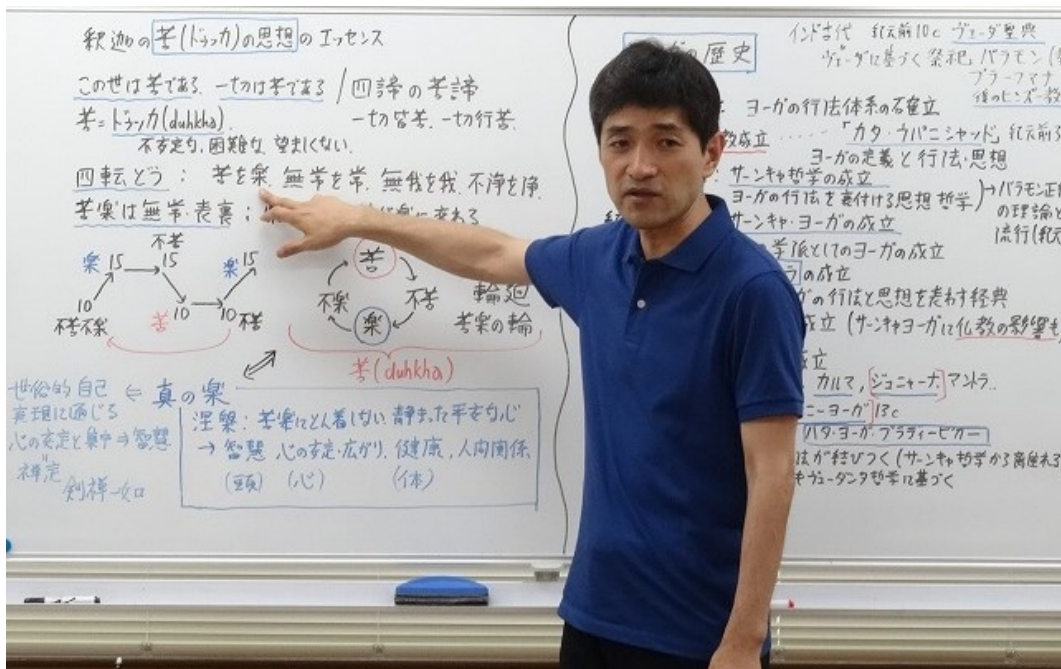 釈迦の苦(ドゥッカ)の思想のエッセンス
この世は苦である、一切は苦である / 四諦の苦諦
苦=ドゥッカ(duhkha)
一切皆苦、一切行苦
不安定な、困難な、望ましくない
四転どう: 苦を楽 無常を常、無我を我、不浄を浄
苦楽は無常・表裏;
に変わる
不苦
楽 15 15 楽 15
10 苦 10 10 不苦
不苦不楽
苦
不楽 不苦
楽
輪廻
苦楽の輪
苦(duhkha)
世俗的自己 ⇐ 真の楽
実現に通じる
心の安定と集中⇒智慧
禅定
剣禅一如
涅槃: 苦楽にとん着しない 静まった平安な心
→ 智慧 心の安定・広がり、健康、人間関係
(頭) (心) (体)
インド古代 紀元前10c ヴェーダ聖典
の歴史
ヴェーダに基づく祭祀 バラモン
ブラーフマナ
後のヒンズー教
ヨーガの行法体系の確立
成立 ‥‥‥ 「カタ・ウパニシャッド」紀元前
ヨーガの定義と行法・思想
サーンキャ哲学の成立
ヨーガの行法を裏付ける思想哲学)
→バラモン正
の理論
流行(紀元
サーンキャ・ヨーガの成立
学派としてのヨーガの成立
の成立
の行法と思想を表わす経典
成立 (サーンキャヨーガに仏教の影響も
成立
カルマ, ジュニャーナ, マントラ..
ヨーガ 13c
ハタ・ヨーガ・プラディーピカー
法が結びつく(サーンキャ哲学から離れる
ヴェーダンタ哲学に基づく